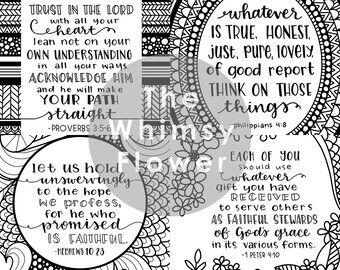 TRUST IN THE LORD
with all your
heart
lean not on your
OWN UNDERSTANDING
in all your ways
ACKNOWLEDGE HIM
and he will make
YOUR PATH
straight
- PROVERBS 3:5-6
whatever
IS TRUE, HONEST,
JUST, PURE, LOVELY,
of good report
THINK ON THOSE
things
philippians 4:8
let us hold
unswervingly
to the hope
WE PROFESS,
for he who
promised
IS FAITHFUL.
-HEBREWS 10:23
EACH OF YOU
should use
whatever
gift you have
RECEIVED
to serve others
AS FAITHFUL STEWARDS
of God's grace
in its various forms.
- 1 PETER 4:10
The
Whimsy
Flower